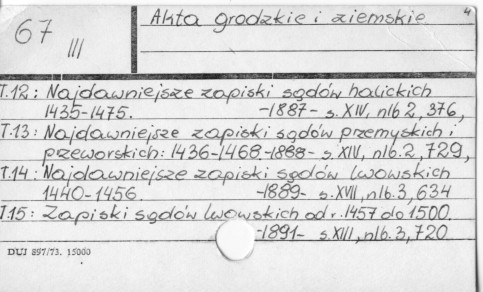 67
III
Akta grodzkie i ziemskie
4
T.12: Najdawniejsze zapiski sądów halickich
1435-1475. -1887- s. XIV, nlb 2, 376,
T.13: Najdawniejsze zapiski sądów przemyskich i
przeworskich: 1436-1468.-1888- s. XIV, nlb. 2, 729,
T.14: Najdawniejsze zapiski sądów lwowskich
1440-1456. -1889- s. XVII, nlb. 3, 634
T.15: Zapiski sądów lwowskich od r. 1457 do 1500.
-1891- s. XIII, nlb. 3, 720
DUJ 897/73. 15000